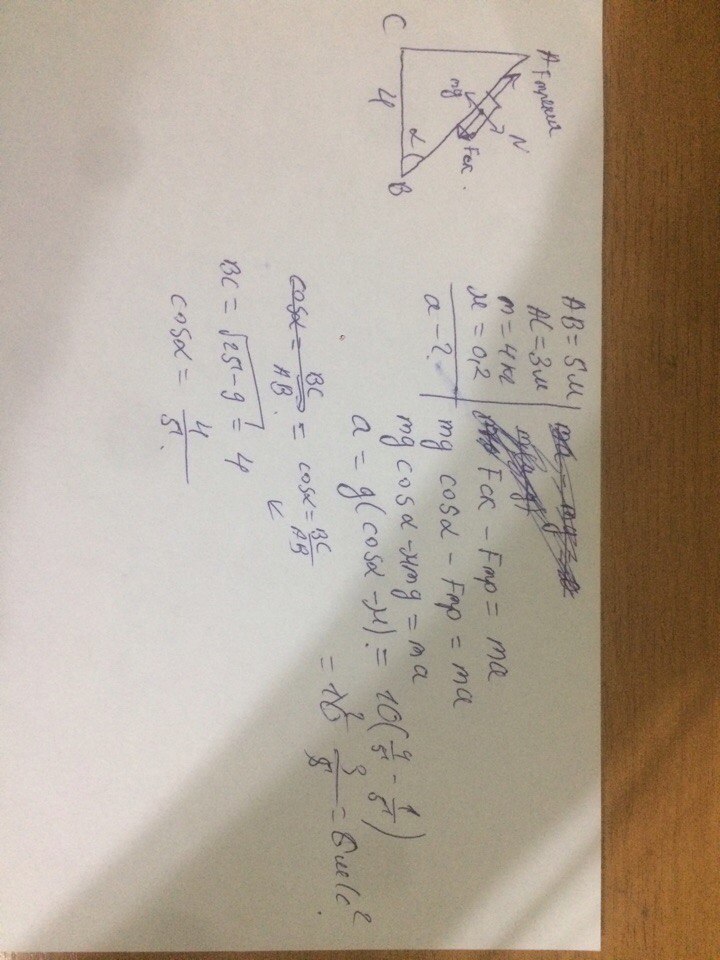 C
A Fтрения
mg
N
Fск.
4
α
B
AB = 5м
AC = 3м
m = 4кг
μ = 0,2
a - ?
Fск - Fтр = ma
mg cosα - Fтр = ma
mg cosα - μmg = ma
a = g(cosα - μ) = 10(4/5 - 1/5)
= 10 3/5 = 6м/с²
cosα = BC/AB = cosα = BC/AB
BC = √25-9 = 4
cosα = 4/5